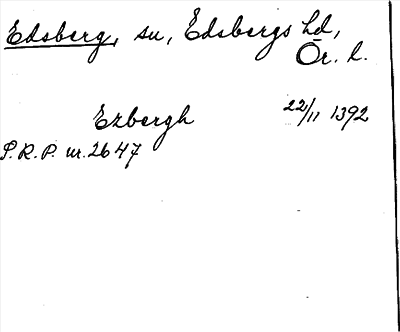 Edsberg, sn, Edsbergs hd,
Ör. l.
Ezbergh 22/11 1392
P.R.P. nr. 2647